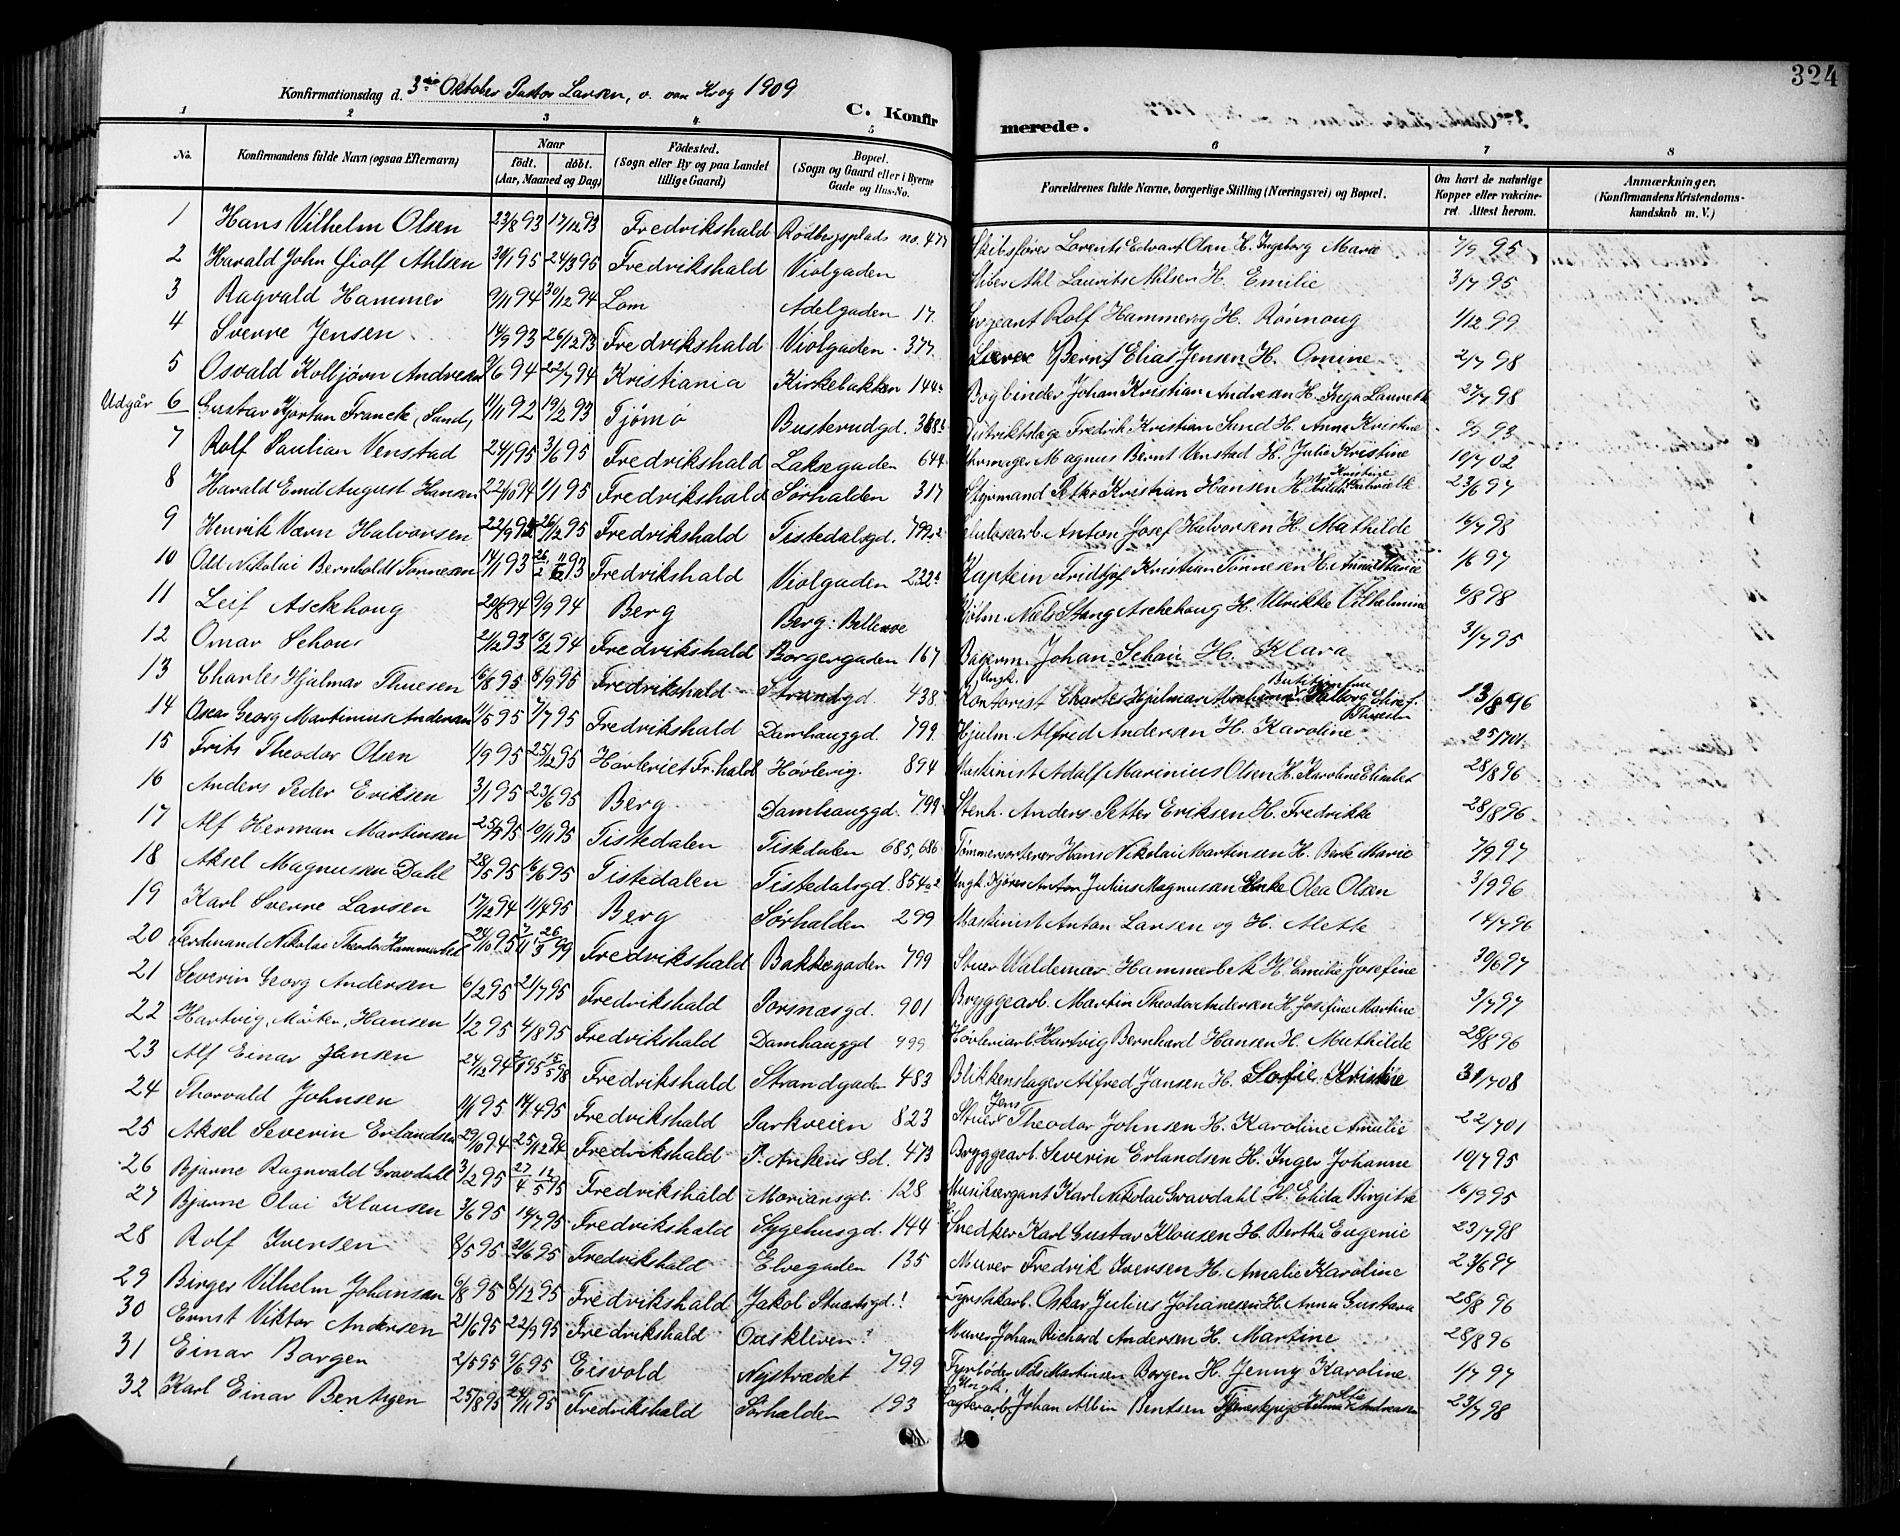 324
Konfirmationsdag d. 3die Oktober Pastor Larsen, v. van Krog 1909
C. Konfirmerede.
1 2 3 4 5 6 7 8
No. Konfirmandens fulde Navn (ogsaa Efternavn) Naar født. døbt. (Aar, Maaned og Dag) Fødested. (Sogn eller By og paa Landet tillige Gaard) Bopæl. (Sogn og Gaard eller i Byerne Gade og Hus-No. Forældrenes fulde Navne, borgerlige Stilling (Næringsvei) og Bopæl. Om havt de naturlige Kopper eller vakcineret. Attest herom. Anmærkninger. (Konfirmandens Kristendomskundskab m. V.)
1 Hans Vilhelm Olsen 23/8 93 17/12 93 Fredrikshald Rødbergsplads no. 477 Skibsfører Lorents Edvart Olsen H. Ingeborg Marie 7/9 95
2 Harald John Giolf Ahlsen 30/1 95 24/3 95 Fredrikshald Violgaden Ahl Laurits Ahlsen H. Emilie 3/7 95
3 Ragvald Hammer 9/11 94 30/12 94 Lom Adelgaden 17. Sergeant Rolf Hammer og H. Rønnoug 1/12 99
4 Sverre Jensen 14/9 93 26/12 93 Fredrikshald Violgaden 377. Bernt Elias Jensen H. Omine 2/7 98
5 Osvald Kolbjørn Andresen 9/6 94 22/7 94 Kristiania Kirkebakken 144a Bogbinder Johan Kristian Andresen H. Inga Laurette 27/7 98
Udgår 6 Gustav Kjartan Franck (Sund) 11/11 92 19/2 93 Tjømø Busterudgd. 368b Distriktslæge Fredrik Kristian Sund H. Anna Kristine 93
7 Rolf Paulian Venstad 24/1 95 3/6 95 Fredrikshald Laksegaden 644 Urmager Magnus Bernt Venstad H. Julie Kristine 10/7 02
8 Harald Emil August Hansen 22/10 94 1/1 95 Fredrikshald Sørhalden 317 Styrmand Petter Kristian Hansen H. Kristine 23/6 97
9 Henrik Værn Halvorsen 22/9 95 26/12 95 Fredrikshald Tistedalsgd. 799 Anton Josef Halvorsen H. Mathilde 16/7 98
10 Odd Nikolai Bernholdt Tønnesen 14/11 93 Fredrikshald Violgaden 222a Kaptein Fridtjof Kristian Tønnesen H. Anna Marie 1/6 97
11 Leif Asckhoug 20/8 94 9/9 94 Berg Berg: Bellevue Hjelm. Niels Stang Aschehoug H. Ulrikke Vilhelmine 6/8 98
12 Omar Schou 21/12 93 18/2 94 Fredrikshald Borgergaden 167 Johan Schou H. Klara 31/7 95
13 Charles Hjalmar Thuesen 16/8 95 8/9 95 Fredrikshald Strandgd. 438 Ungk. Kontorist Charles Hjelmar Thuesen 13/8 96
14 Oscar Georg Martinius Andersen 11/5 95 7/7 95 Fredrikshald Damhauggd. 799. Hjulm. Alfred Andersen H. Karoline 25/7 01
15 Frits Theodor Olsen 1/9 95 25/12 95 Høvleriet Fr.hald Høvlerig. 894 Maskinist Adolf Marinius Olsen H. Karoline Elisabet 28/8 96
16 Anders Peder Eriksen 3/1 95 23/6 95 Berg. Damhauggd. 799 Stenh. Anders Petter Eriksen H. Fredrikke 28/8 96
17 Alf Herman Martinsen 25/9 95 10/11 95 Tistedalen Tistedalen 685, 686 Tømmersorterer Hans Nikolai Martinsen H. Berte Marie 7/9 97
18 Aksel Magnusen Dahl 28/5 95 16/6 95 Tistedalen Tistedalsgd. 854 Ungk. Kjører Anton Julius Magnusen Enke Olea Olsen 3/9 96
19 Karl Sverre Larsen 17/12 94 1/4 95 Berg Sørhalden 299 Maskinist Anton Larsen og H. Alette 14/7 96
20 Ferdinand Nikolai Theodor Hammerbek 24/10 95 26/3 99 Fredrikshald Bakkegaden 799 Stuer Waldemar Hammerbek H. Emilie Josefine 30/6 97
21 Severin Georg Andersen 6/2 95 21/7 95 Fredrikshald Porsnæsgd. 901 Bryggearb. Martin Theodor Andersen H. Josefine Martine 3/7 97
22 Hartvig, Morten, Hansen 1/2 95 4/8 95 Fredrikshald Damhauggd 799 Høvleriarb. Hartvig Bernhard Hansen H. Mathilde 28/8 96
23 Alf Einar Jansen 24/12 94 Fredrikshald Strandgaden 483 Blikkenslager Alfred Jansen H. Sofie Kristine 31/7 08
24 Thorvald Johnsen 1/1 95 14/4 95 Fredrikshald Parkveien 823 Stuer Jens Theodor Johnsen H. Karoline Amalie 22/7 01
25 Aksel Severin Erlandsen 29/10 94 25/12 94 Fredrikshald P. Ankers Gd. 473 Bryggearb. Severin Erlandsen H. Inger Johanne 10/7 95
26 Bjarne Ragnvald Gravdahl 3/2 95 27/4 12/5 95 Fredrikshald Moriansgd. 128 Musiksergant Karl Nikolai Gravdahl H. Elida Birgitte 16/9 95
27 Bjarne Olai Klausen 3/6 95 14/7 95 Fredrikshald Sygehusgd. 144 Snedker Karl Gustav Klausen H. Bertha Eugenie 23/7 98
28 Rolf Iversen 8/5 95 30/6 95 Fredrikshald Elvegaden 135 Murer Fredrik Iversen H. Amalie Karoline 23/6 97
29 Birger Vilhelm Johansen 6/8 95 8/12 95 Fredrikshald Jakob Stuartsgd. ! Oskar Julius Johanesen H. Anna Gustava 28/8 96
30 Ernst Viktor Andersen 21/6 95 22/9 95 Fredrikshald Oaskleven ? Murer Johan Richard Andersen H. Martine 28/8 96
31 Einar Borgen 2/5 95 9/6 95 Eisvold Nystrædet 799 Fyrbøder Nils Martinsen Borgen H. Jenny Karoline 1/7 97
32 Karl Einar Bentsgen 25/8 95 24/11 95 Fredrikshald Sørhalden 193 Ungk. Johan Albin Bentsen Tjenestpige Hilma Andreasen 23/7 98